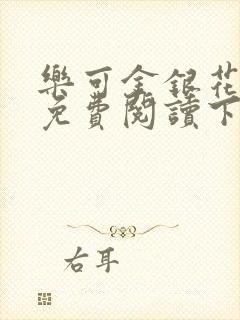 樂可金銀花
免費閱讀下
右耳